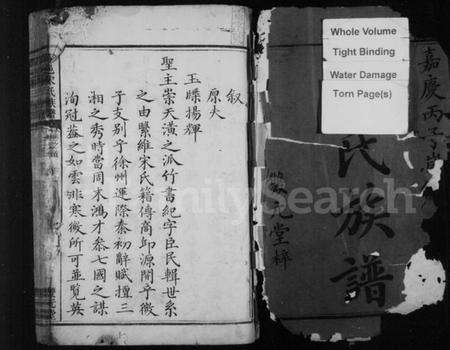 Whole Volume
Tight Binding
Water Damage
Torn Page(s)
嘉慶丙子
氏族譜
堂梓
叙
原夫
玉牒揚輝
聖主崇天潢之派竹書紀字臣民輯世系
之由繫維宋氏籍傳商卸源開乎微
子支別乎徐州運際秦初辭賦擅三
湘之秀時當周末鴻才叅七國之謀
洵冠葢之如雲非寒微所可並覧英
FamilySearch